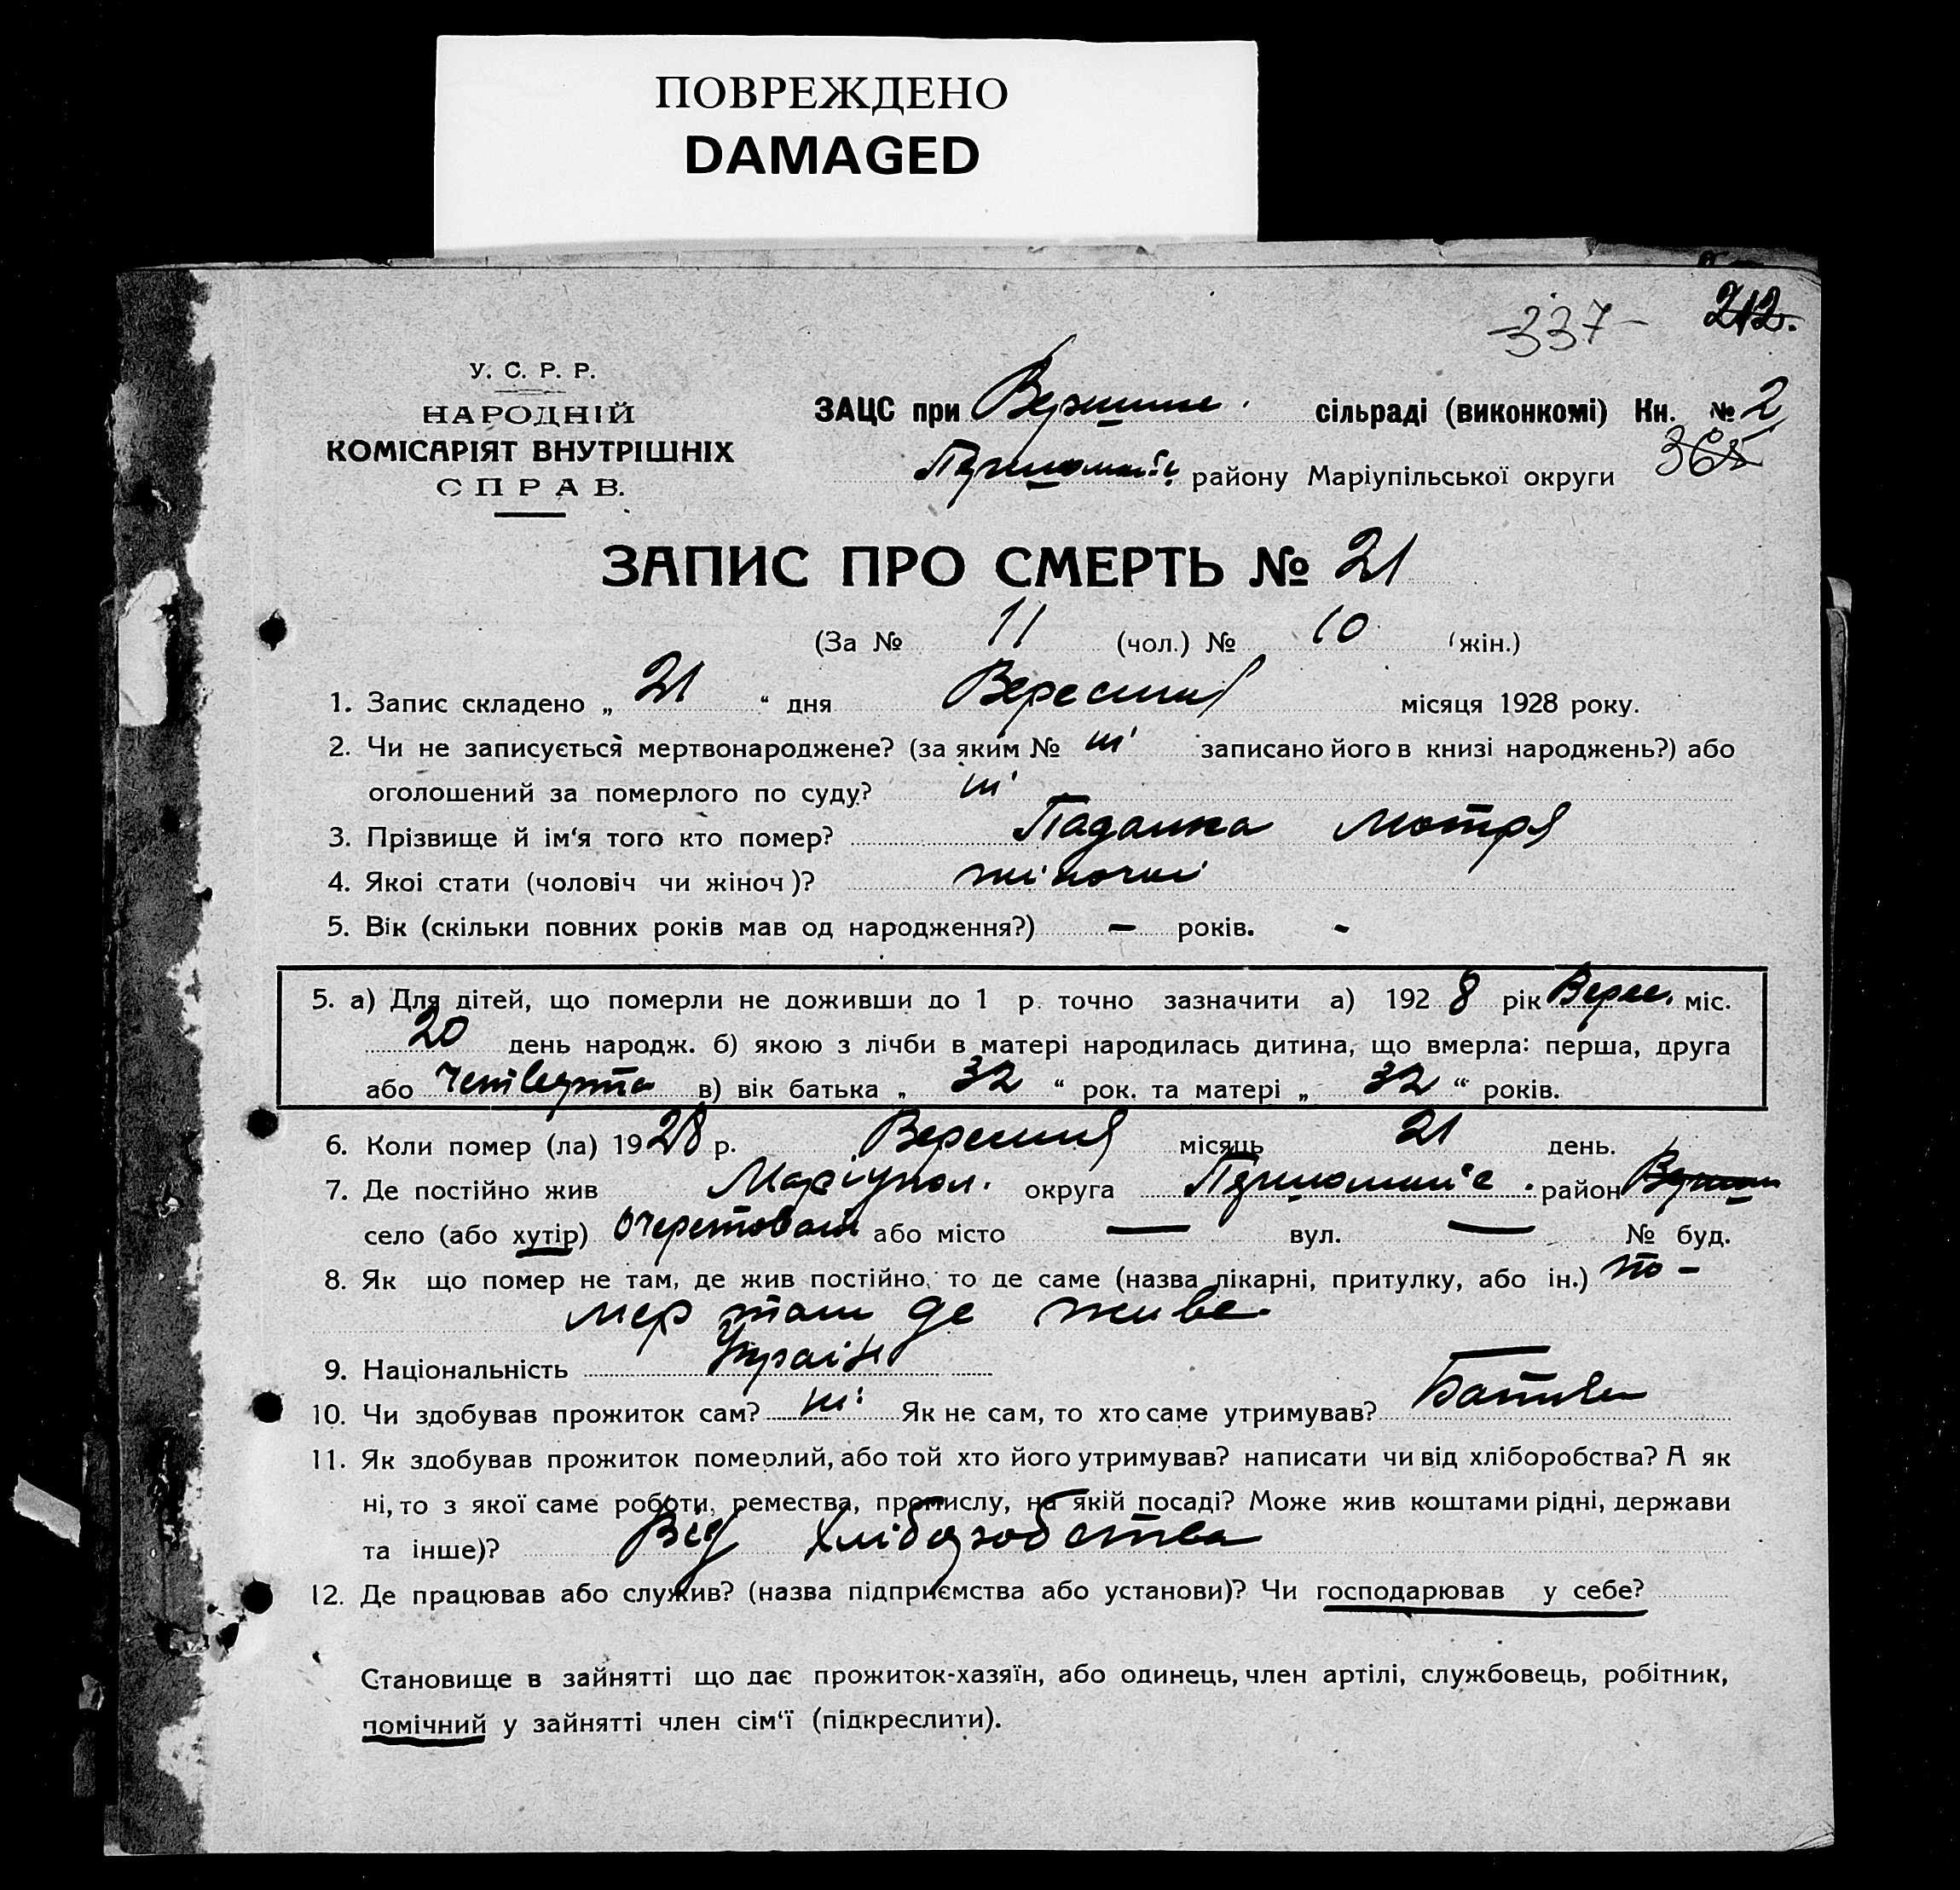 ПОВРЕЖДЕНО
DAMAGED
337 212.
У. С. Р. Р.
НАРОДНІЙ
КОМІСАРІЯТ ВНУТРІШНІХ
СПРАВ.
ЗАЦС при сільраді (виконкомі) Кн. № 2
365
району Маріупільської округи
ЗАПИС ПРО СМЕРТЬ № 21
(За № 11 (чол.) № 10 (жін.)
1. Запис складено „ 21 “ дня Вересня місяця 1928 року.
2. Чи не записується мертвонароджене? (за яким № ні записано його в книзі народжень?) або
оголошений за померлого по суду? ні
3. Прізвище й ім‘я того кто помер? Падалка Мотря
4. Якоі стати (чоловіч чи жіноч)? жіночої
5. Вік (скільки повних років мав од народження?) — років. -
5. а) Для дітей, що померли не доживши до 1 р. точно зазначити а) 1928 рік Верес. міс.
20 день народж. б) якою з лічби в матері народилась дитина, що вмерла: перша, друга
або четверта в) вік батька „ 32 “ рок. та матері „ 32 “ років.
6. Коли помер (ла) 1928 р. Вересня місяць 21 день.
7. Де постійно жив Маріупол. округа район
село (або хутір) Очеретоват або місто — вул. — № буд.
8. Як що помер не там, де жив постійно, то де саме (назва лікарні, притулку, або ін.) по-
мер там де живе.
9. Національність Україн
10. Чи здобував прожиток сам? ні Як не сам, то хто саме утримував? Батьки
11. Як здобував прожиток померлий, або той хто його утримував? написати чи від хліборобства? А як
ні, то з якої саме роботи, ремества, промислу, на якій посаді? Може жив коштами рідні, держави
та інше)? Від хліборобства
12. Де працював або служив? (назва підприємства або установи)? Чи господарював у себе?
Становище в зайнятті що дає прожиток-хазяїн, або одинець, член артілі, службовець, робітник,
помічний у зайнятті член сім‘ї (підкреслити).